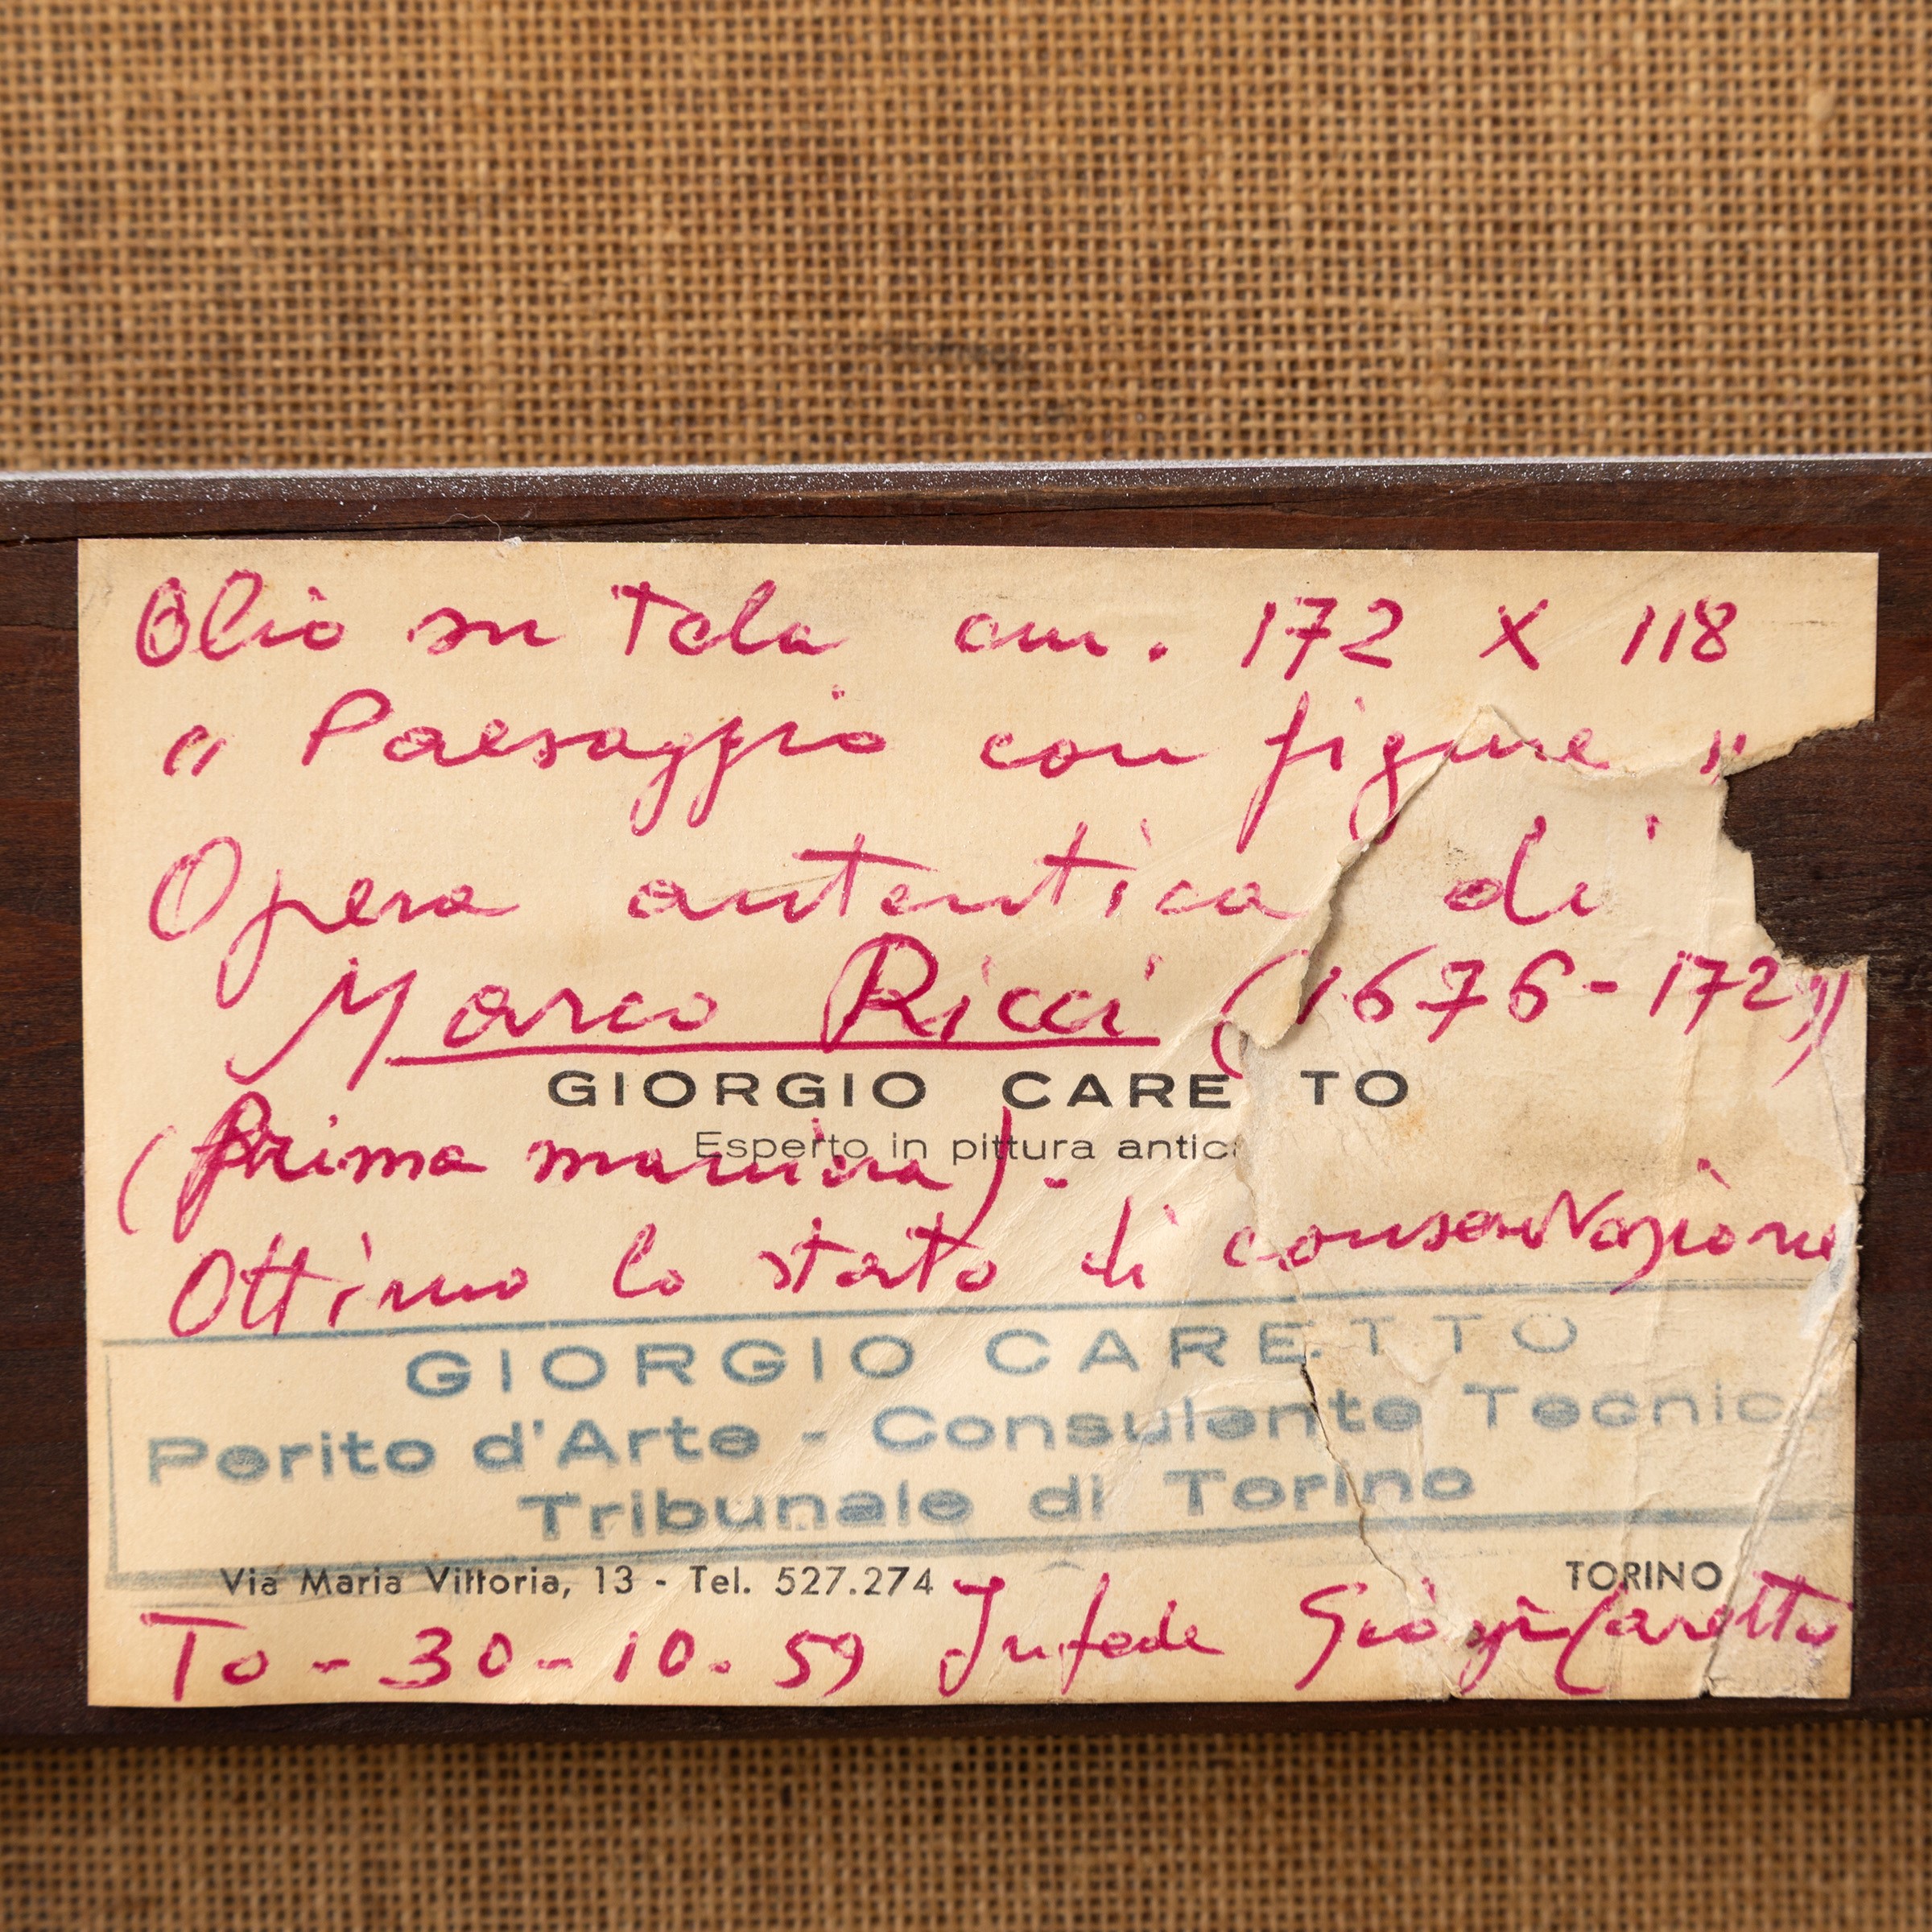 Olio su Tela cm. 172 X 118
" Paesaggio con figure "
Opera autentica di
Marco Ricci (1676-1729)
GIORGIO CARETTO
Esperto in pittura antica
(prima maniera).
Ottimo lo stato di conservazione
GIORGIO CARETTO
Perito d'Arte - Consulente Tecnico
Tribunale di Torino
Via Maria Vittoria, 13 - Tel. 527.274 TORINO
To - 30-10.59 In fede Giorgio Caretto